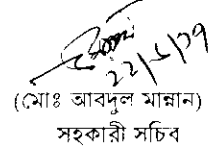 ২২/৬/১৭
(মোঃ আবদুল মান্নান)
সহকারী সচিব